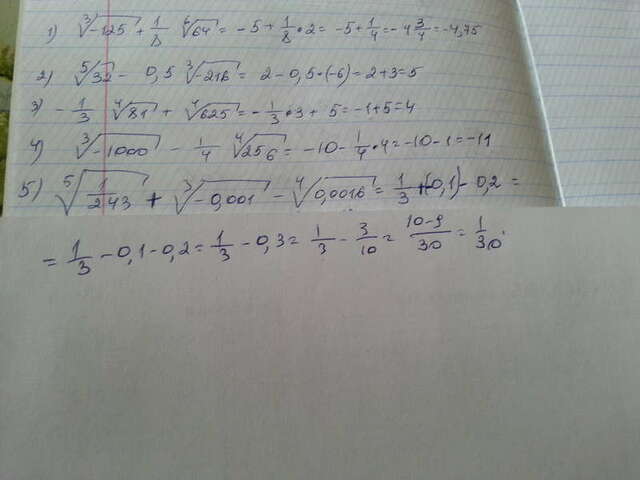 1) ∛-125 + 1/8 ⁶√64 = -5 + 1/8 • 2 = -5 + 1/4 = -4 3/4 = -4,75
2) ⁵√32 - 0,5 ∛-216 = 2 - 0,5 • (-6) = 2+3=5
3) - 1/3 ⁴√81 + ⁴√625 = - 1/3 • 3 + 5 = -1+5=4
4) ∛-1000 - 1/4 ⁴√256 = -10 - 1/4 • 4 = -10 - 1 = -11
5) ⁵√1/243 + ∛-0,001 - ⁴√0,0016 = 1/3 + (-0,1) - 0,2 =
= 1/3 - 0,1 - 0,2 = 1/3 - 0,3 = 1/3 - 3/10 = 10-9/30 = 1/30.